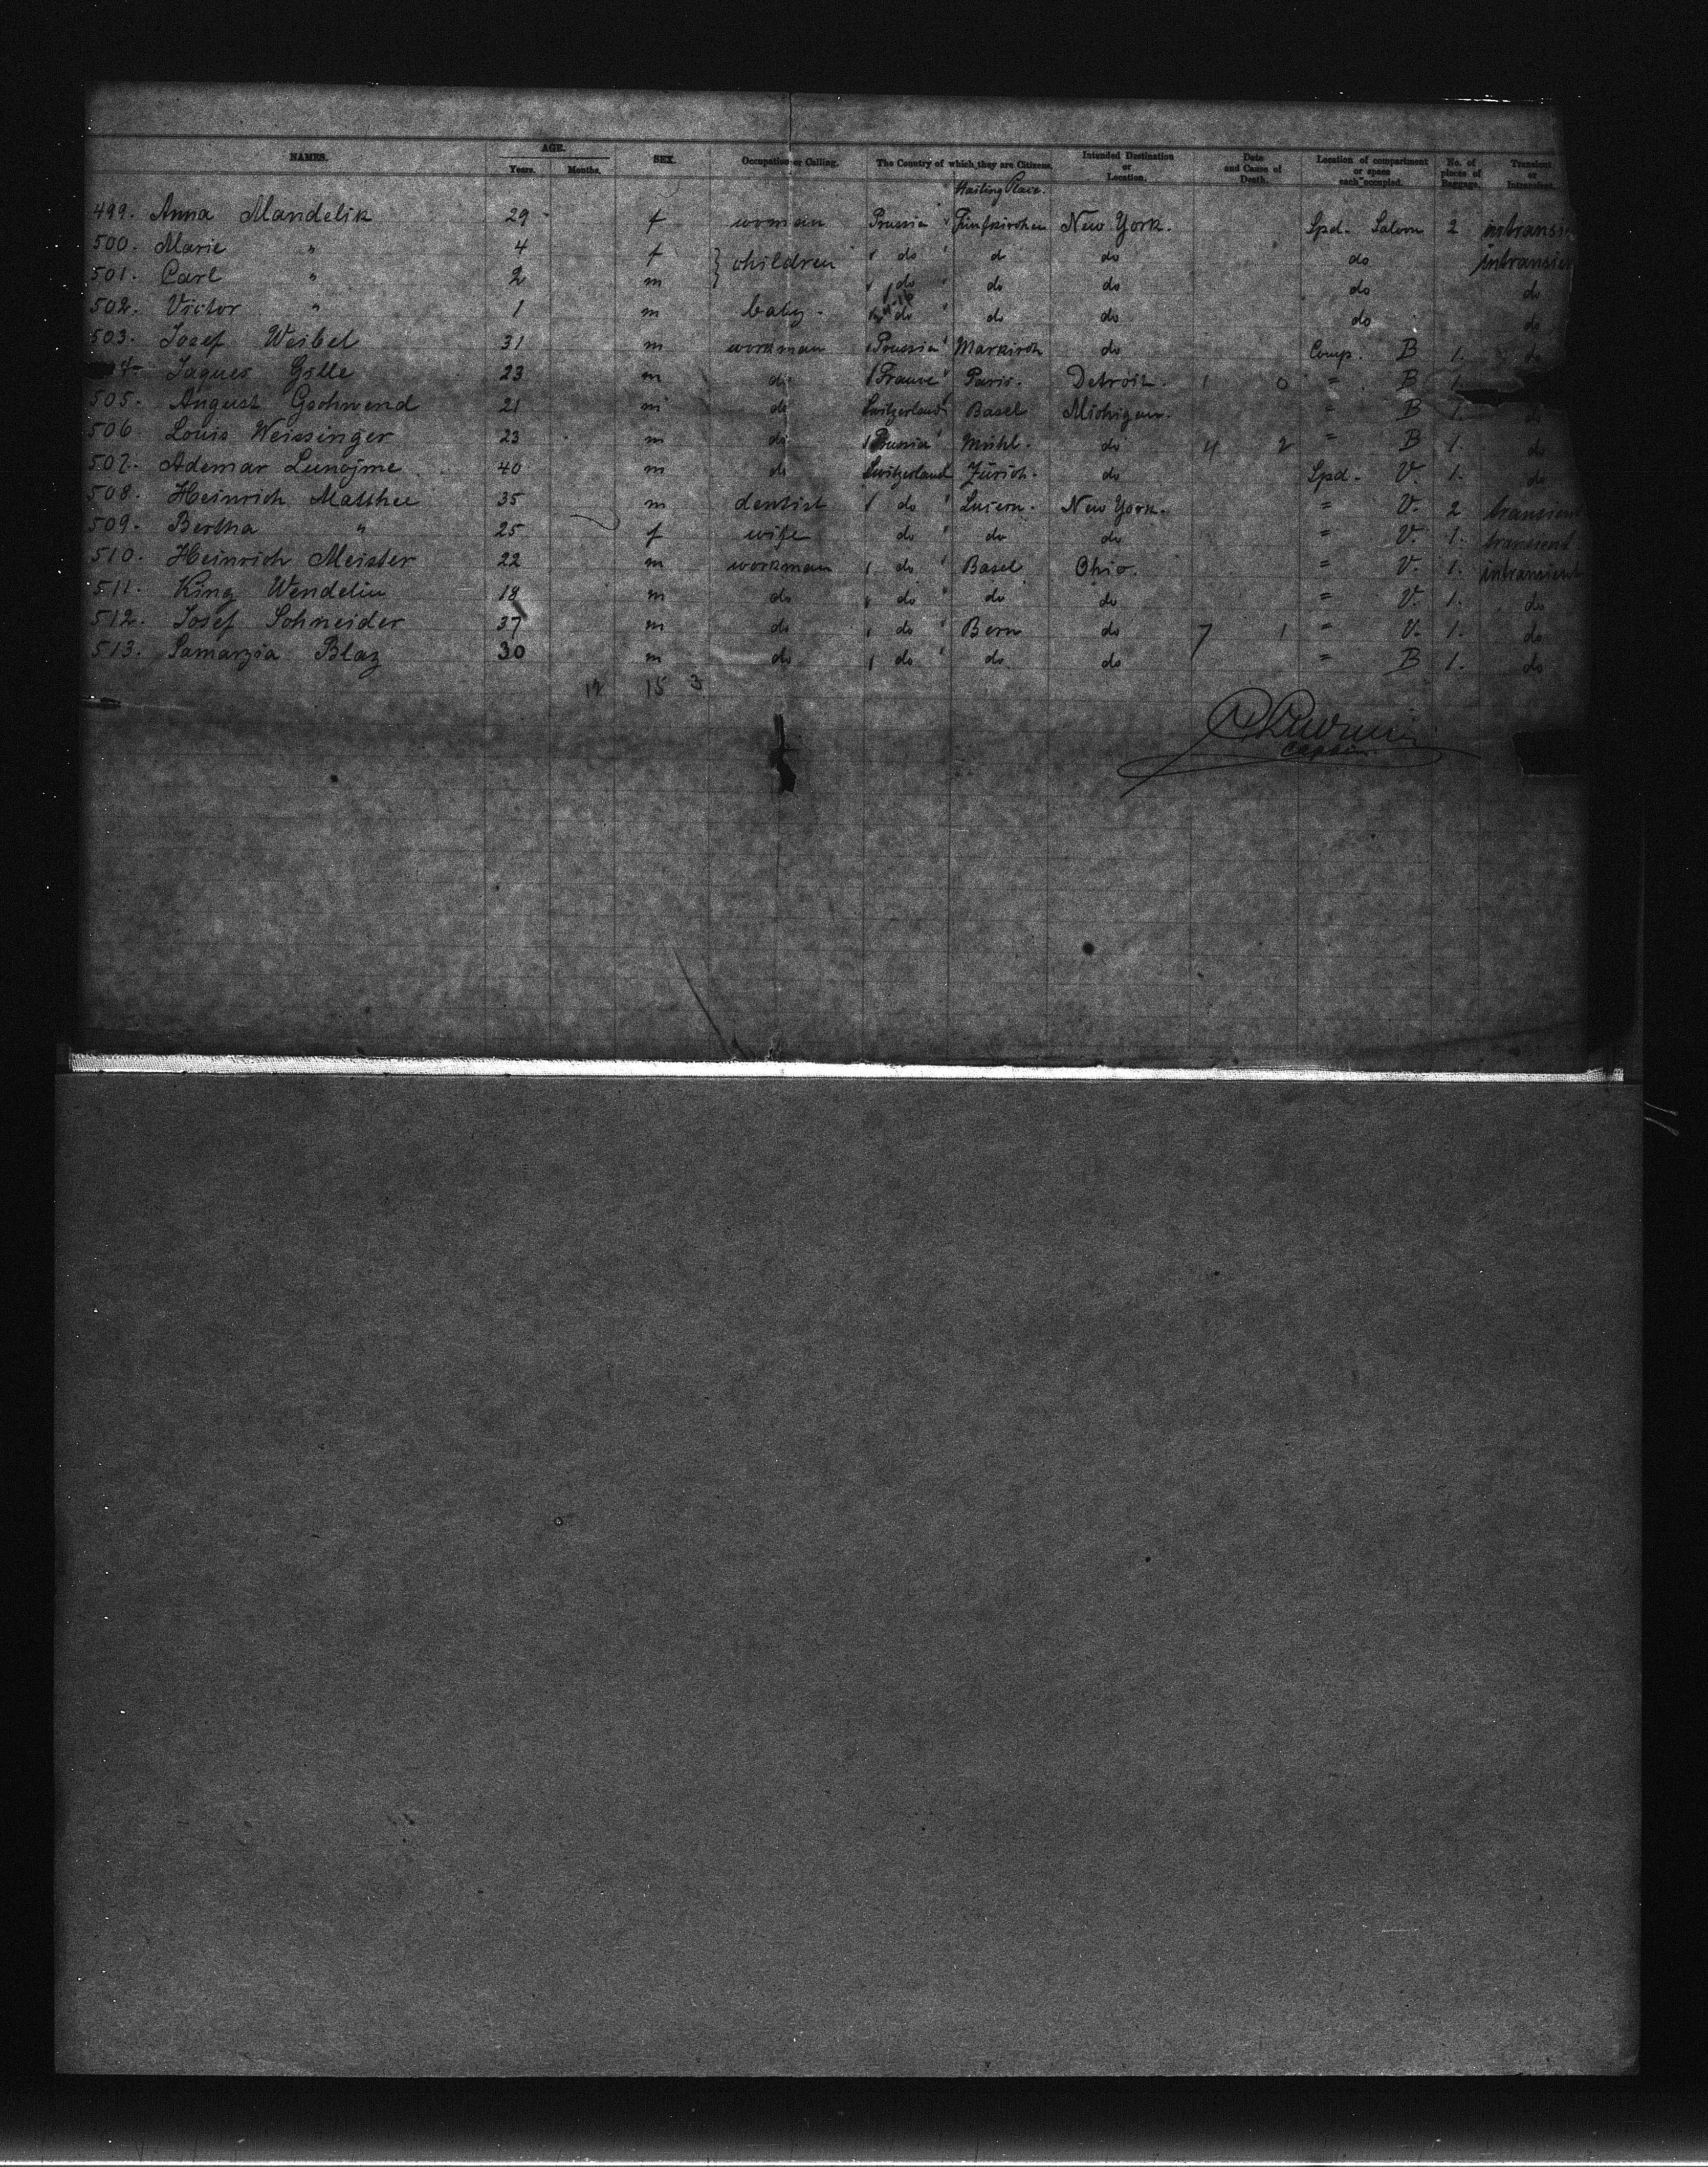 NAMES. AGE. Years. Months. SEX. Occupation or Calling. The Country of which they are Citizens. Intended Destination or Location. Date and Cause of Death. Location of compartment or space each occupied. No. of pieces of Baggage. Transient or Intransient.
Hailing Place.
499. Anna Mandelik 29 f woman Prussia Fünfkirchen New York. Spd. Saloon 2 intransie
500. Marie " 4 f children do do do do intransien
501. Carl " 2 m do do do do do
502. Victor " 1 m baby. do do do do do
503. Josef Weibel 31 m workman Prussia Markirch do Comp. B 1. do
4. Jaques Gille 23 m do France Paris. Detroit. 1 0 " B 1.
505. August Gschwend 21 m do Switzerland Basel Michigan. " B 1. do
506. Louis Weissinger 23 m do Prussia Mühl. do 4 2 " B 1. do
507. Ademar 40 m do Switzerland Zürich. do Spd. V. 1. do
508. Heinrich Matthee 35 m dentist do Luzern. New York. " V. 2 transient
509. Bertha " 25 f wife do do do " V. 1. transient
510. Heinrich Meister 22 m workman do Basel Ohio. " V. 1. intransient
511. King Wendelin 18 m do do do do " V. 1. do
512. Josef Schneider 37 m do do Bern do 7 1 " V. 1. do
513. Samarzia Blaz 30 m do do do do " B 1. do
12 15 3
Captain